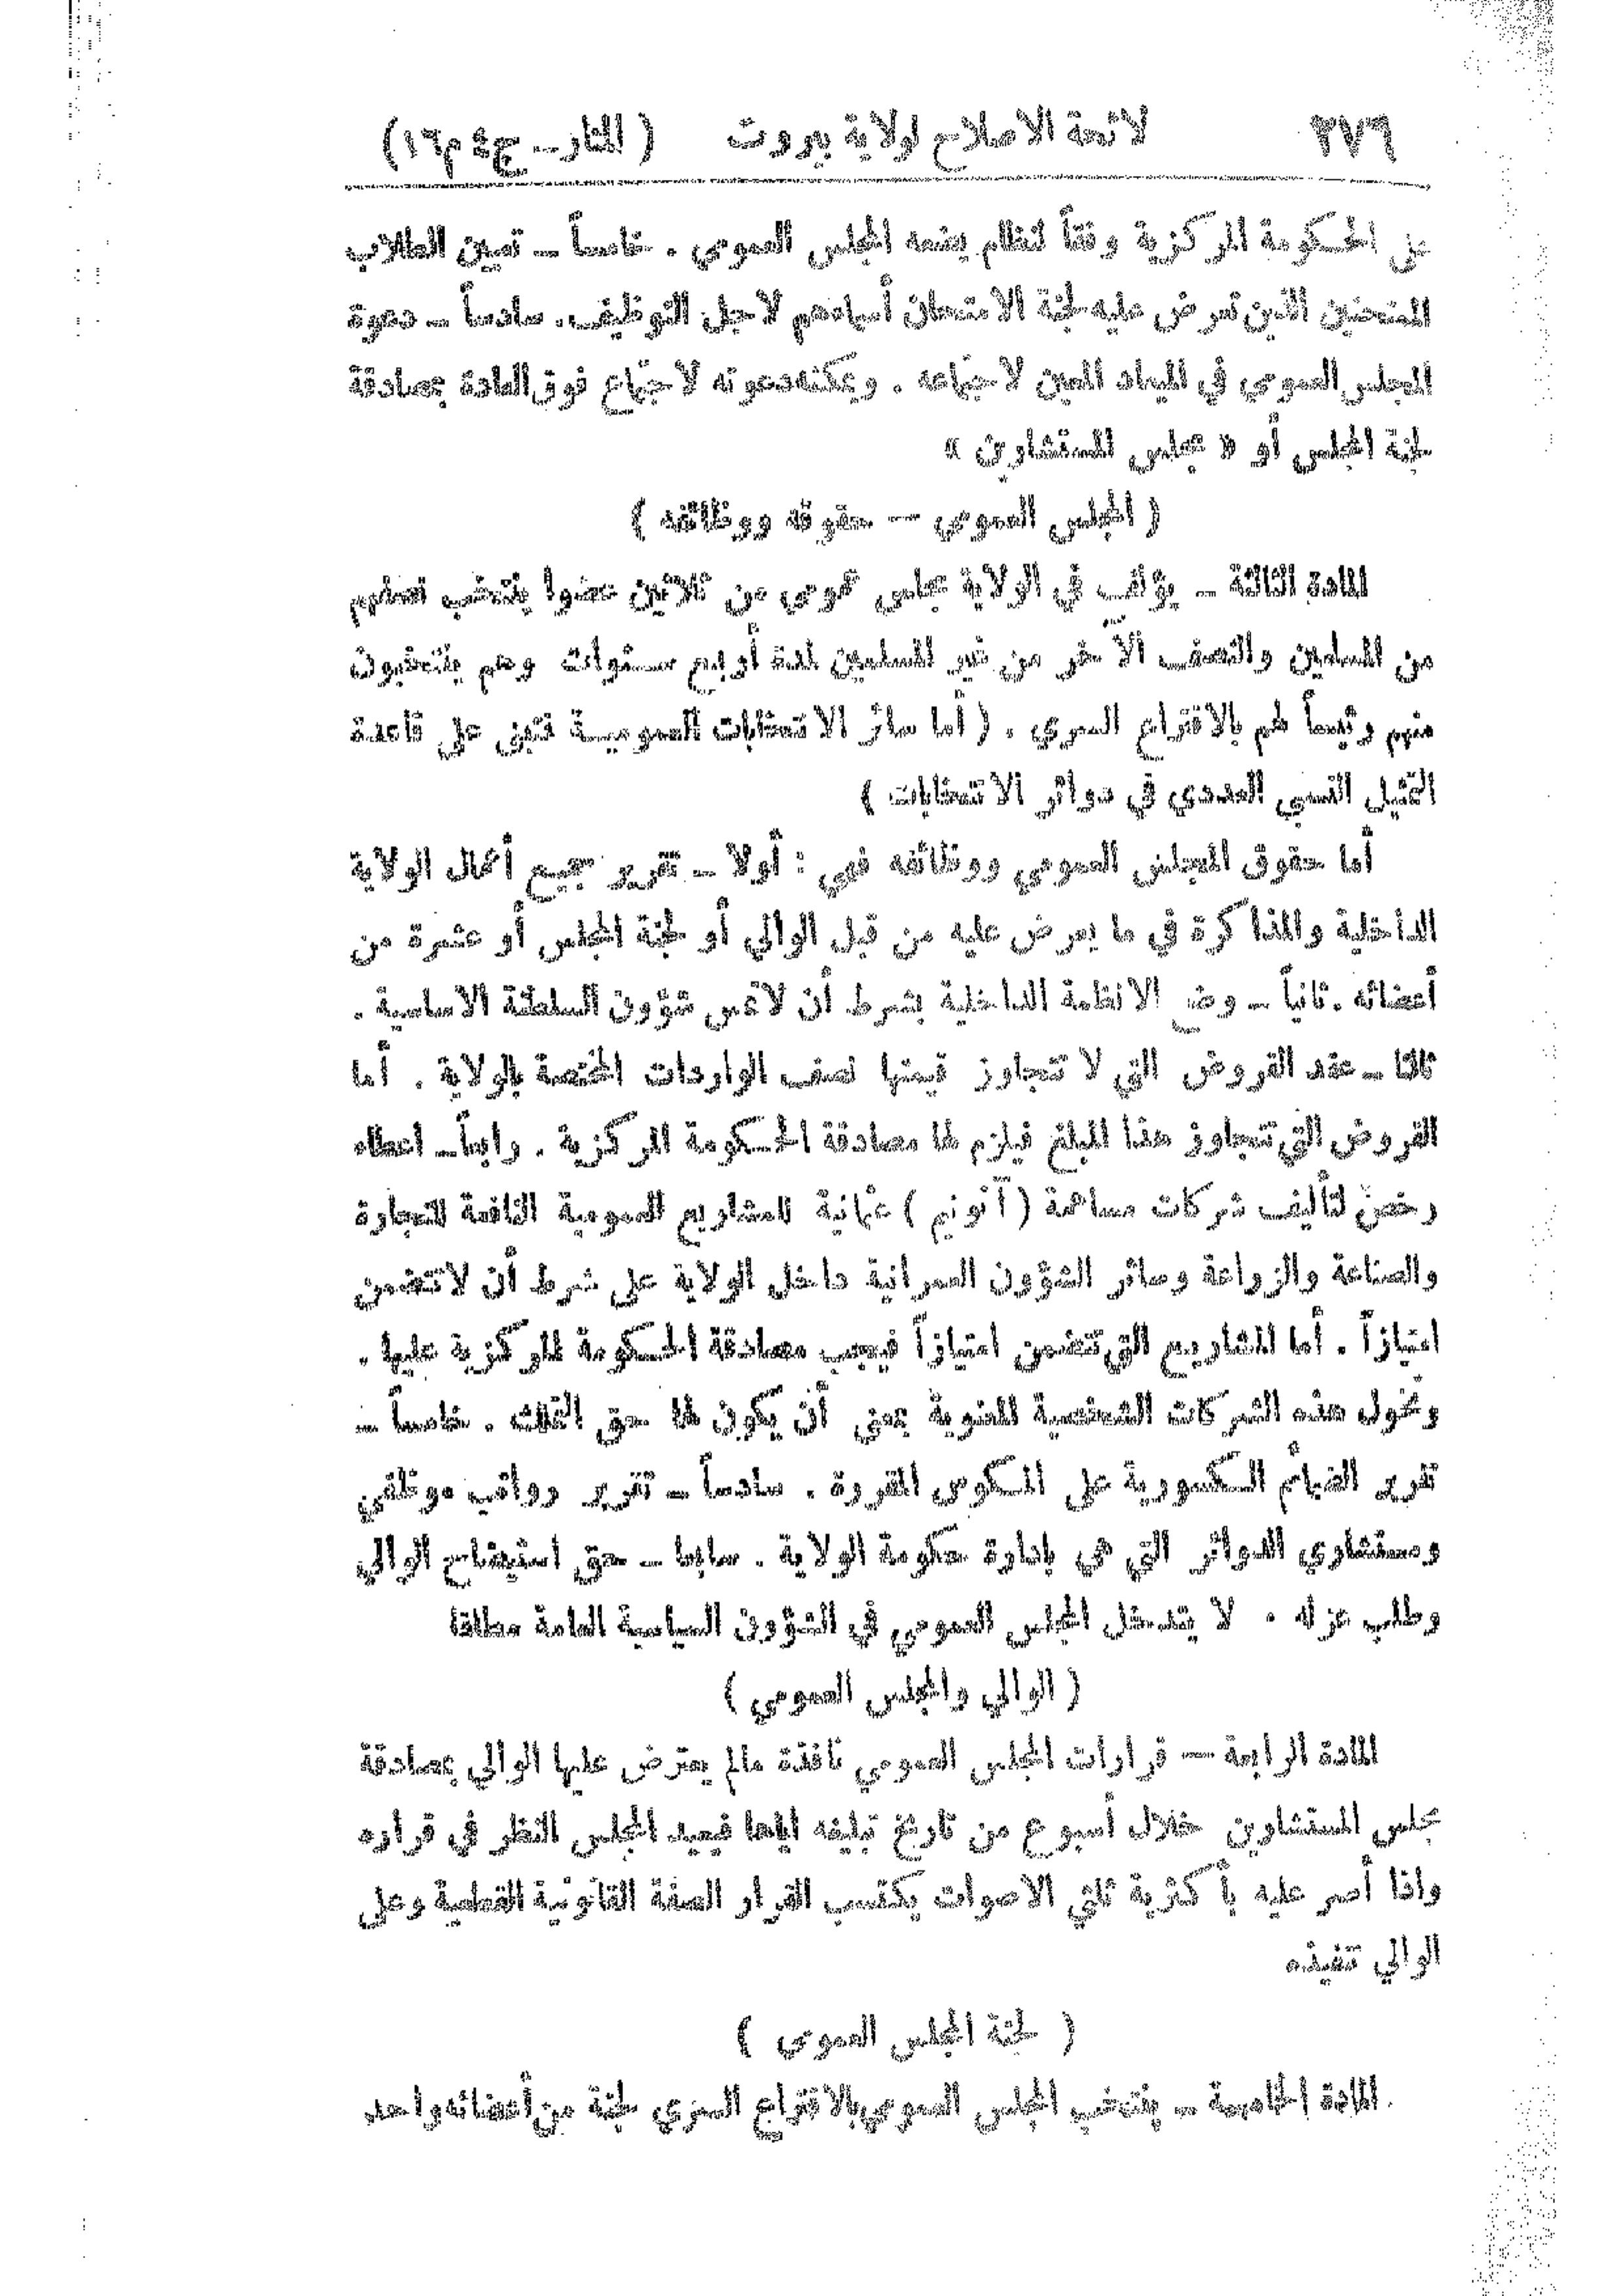 ٢٧٦ لائحة الاصلاح لولاية بيروت ( المنار ــ ج٤ م١٦)
على الحكومة المركزية وفقاً لنظام يضعه المجلس العمومي . خامساً ــ تعيين الطلاب
الممتحنين الذين تعرض عليه لجنة الامتحان أسماءهم لاجل التوظيف. سادساً ــ دعوة
المجلس العمومي في الميعاد المعين لاجتماعه . ويمكنه دعوته لاجتماع فوق العادة بمصادقة
لجنة المجلس أو « مجلس المستشارين »
( المجلس العمومي — حقوقه ووظائفه )
المادة الثالثة ــ يؤلف في الولاية مجلس عمومي من ثلاثين عضوا ينتخب نصفهم
من المسلمين والنصف الآخر من غير المسلمين لمدة أربع سنوات وهم ينتخبون
منهم رئيساً لهم بالاقتراع السري . ( أما سائر الانتخابات العمومية فتبنى على قاعدة
التمثيل النسبي العددي في دوائر الانتخابات )
أما حقوق المجلس العمومي ووظائفه فهي : أولا ــ تقرير جميع أعمال الولاية
الداخلية والمذاكرة في ما يعرض عليه من قبل الوالي أو لجنة المجلس أو عشرة من
أعضائه . ثانياً ــ وضع الانظمة الداخلية بشرط أن لا تمس شؤون السلطنة الاساسية .
ثالثا ــ عقد القروض التي لا تتجاوز قيمتها نصف الواردات المختصة بالولاية . أما
القروض التي تتجاوز هذا المبلغ فيلزم لها مصادقة الحكومة المركزية . رابعاً ــ اعطاء
رخص لتأليف شركات مساهمة ( آنونيم ) عثمانية للمشاريع العمومية النافعة للتجارة
والصناعة والزراعة وسائر الشؤون العمرانية داخل الولاية على شرط أن لا تتضمن
امتيازاً . أما المشاريع التي تتضمن امتيازاً فيجب مصادقة الحكومة المركزية عليها .
وتخول هذه الشركات الشخصية المعنوية بمعنى أن يكون لها حق التملك . خامساً ــ
تقرير الضمائم الكسورية على المكوس المقررة . سادساً ــ تقرير رواتب موظفي
ومستشاري الدوائر التي هي بادارة حكومة الولاية . سابعا ــ حق استيضاح الوالي
وطلب عزله . لا يتدخل المجلس العمومي في الشؤون السياسية العامة مطلقا
( الوالي والمجلس العمومي )
المادة الرابعة — قرارات المجلس العمومي نافذة مالم يعترض عليها الوالي بمصادقة
مجلس المستشارين خلال أسبوع من تاريخ تبليغه اياها فيعيد المجلس النظر في قراره
واذا أصر عليه بأكثرية ثلثي الاصوات يكتسب القرار الصفة القانونية القطعية وعلى
الوالي تنفيذه
( لجنة المجلس العمومي )
المادة الخامسة ــ ينتخب المجلس العمومي بالاقتراع السري لجنة من أعضائه واحد